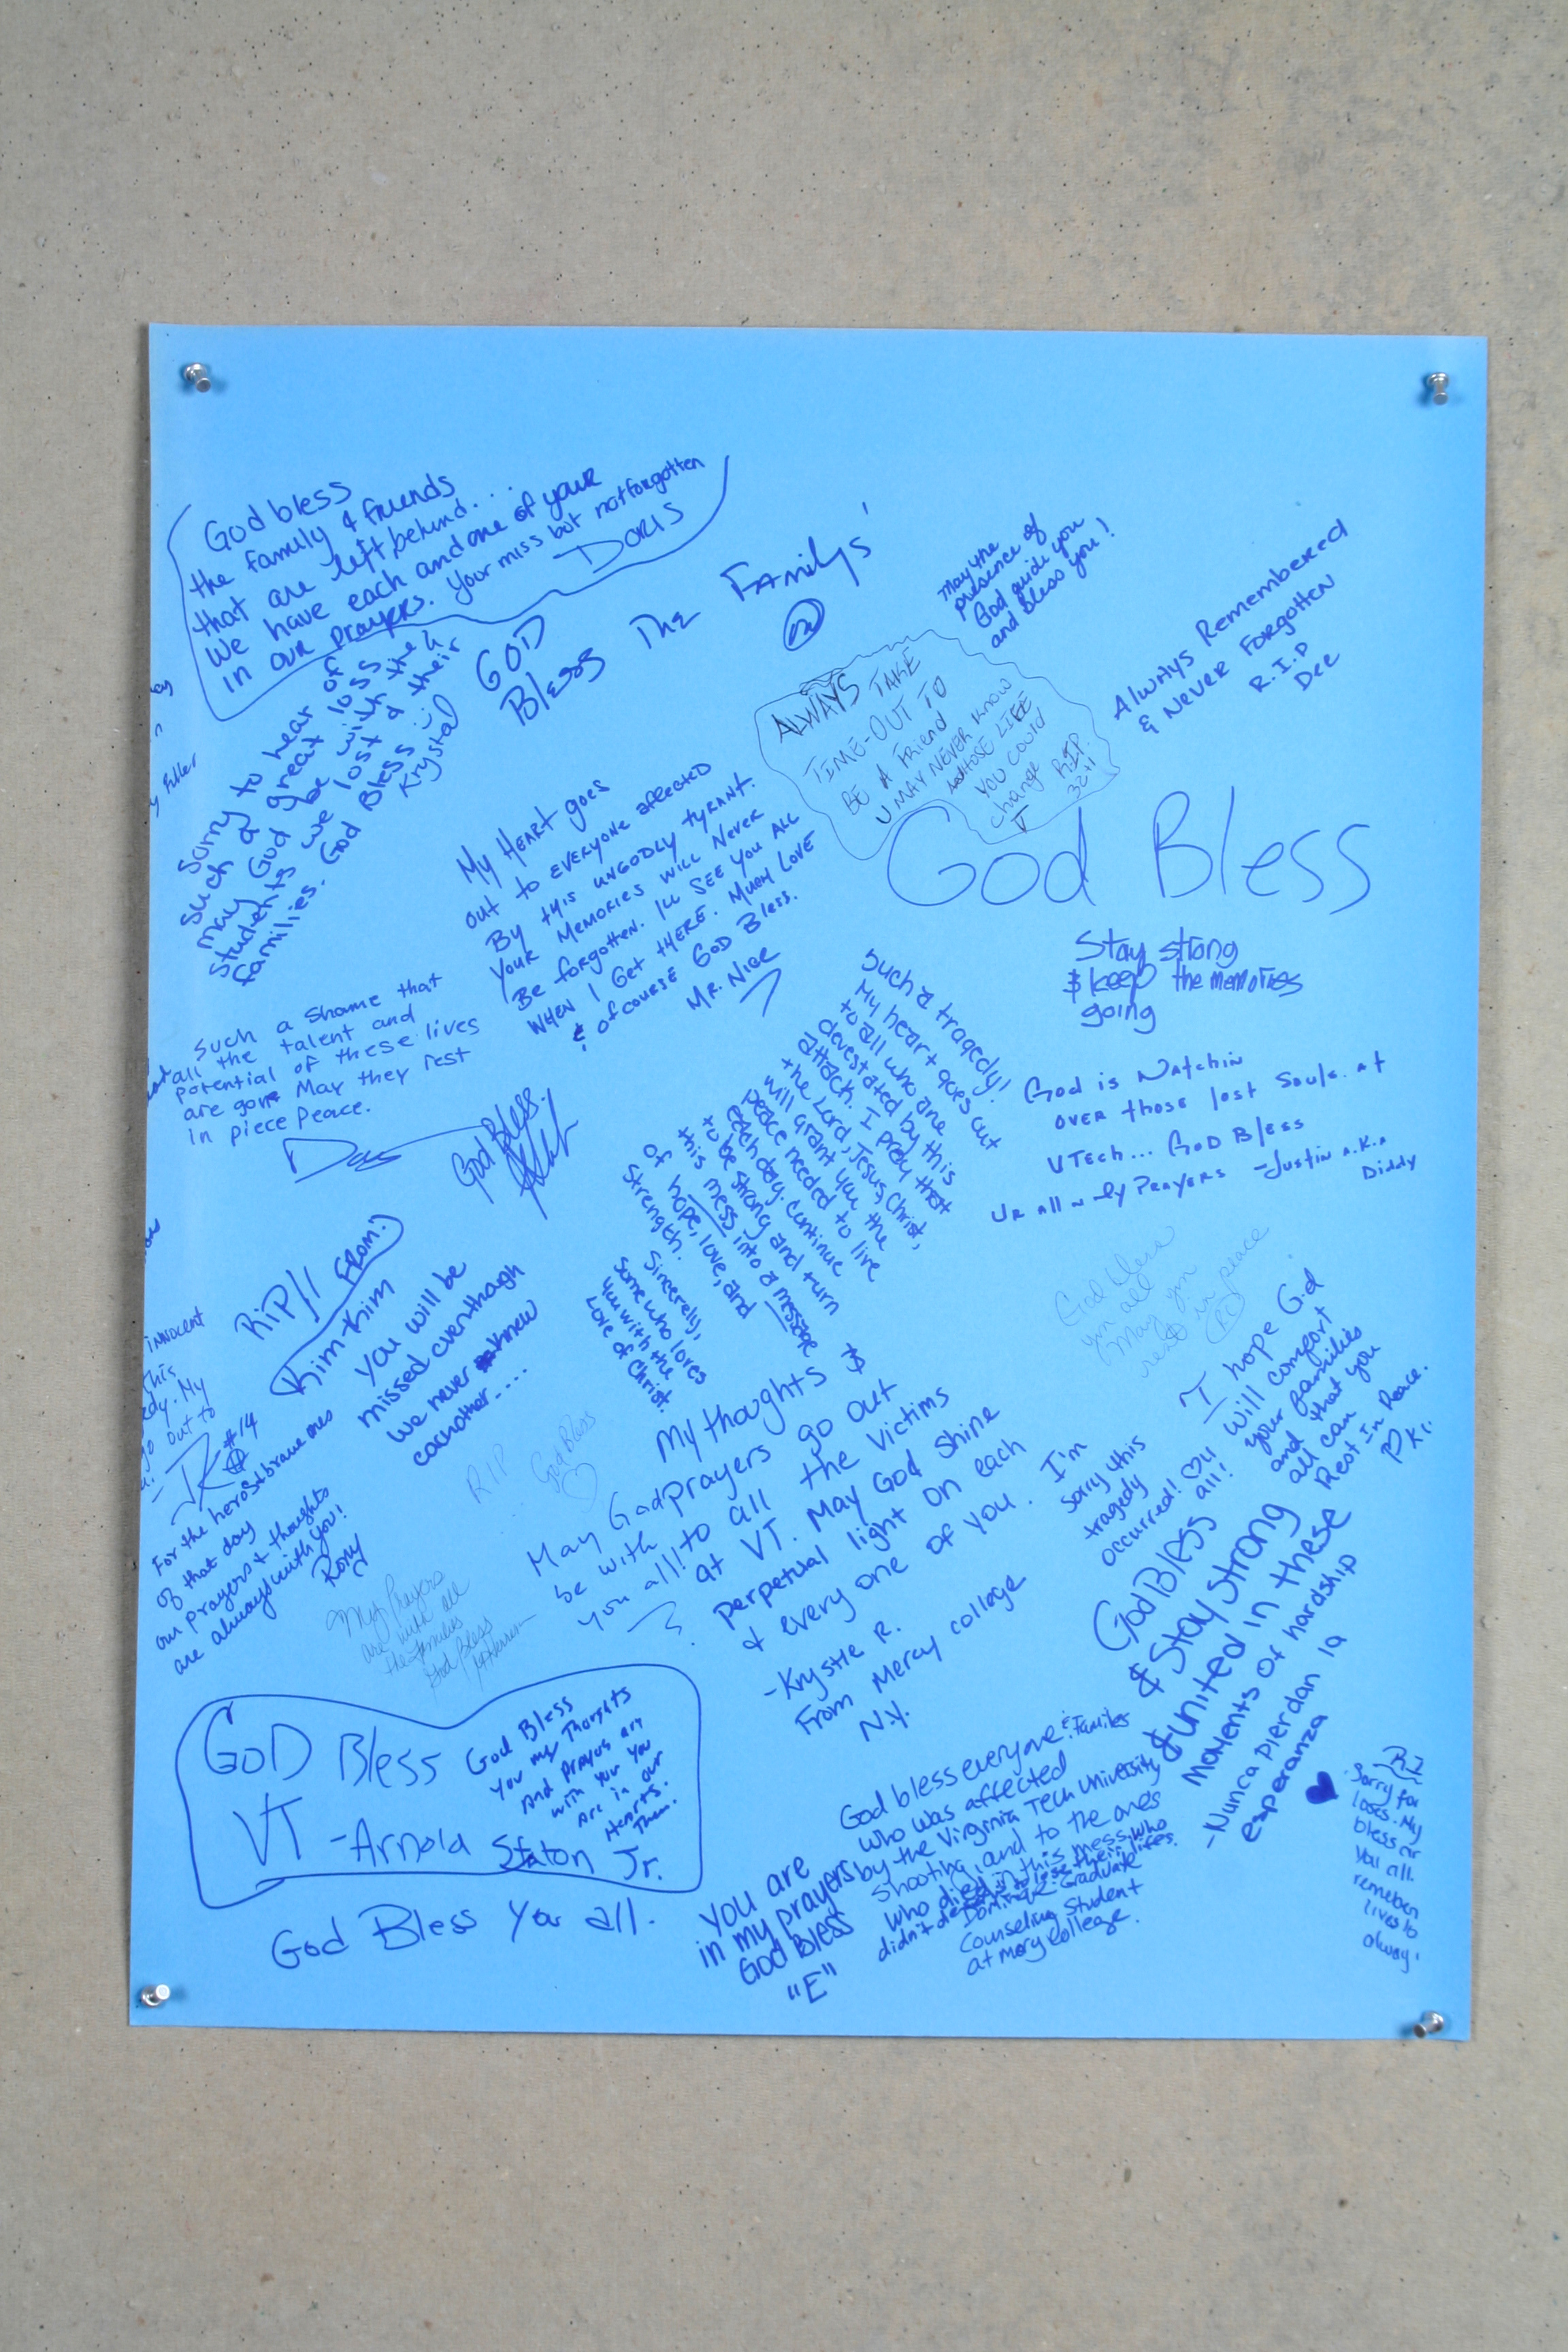 God bless
the family & friends
that are left behind...
We have each and one of your
in our prayers. Your miss but not forgotten
Doris
GOD
Bless The Familys'
May the
presence of
God guide you
and Bless you!
Always Remembered
& Never Forgotten
R.I.P
Dee
ALWAYS TAKE
TIME-OUT TO
BE A Friend
U MAY NEVER Know
WHOSE LIFE
YOU COULD
change RIP
32+1
V
Sorry to hear of
such a great loss
may God be with the
students we lost & their
families. God Bless :)
Krystal
by
Eller
My Heart goes
out to everyone affected
By this ungodly tyrant.
Your Memories will Never
Be forgotten. Ill See You All
When I Get there. Much Love
& of course God Bless.
Mr. Nice
God Bless
Stay strong
& keep the memories
going
Such a shame that
all the talent and
potential of these lives
are gone May they rest
in piece Peace.
God Bless.
Such a tragedy!
My heart goes out
to all who are
devestated by this
attack. I pray that
the Lord, Jesus Christ,
will grant you the
peace needed to live
each day. Continue
to be strong and turn
this mess into a message
of hope, love, and
strength.
Sincerely,
Some who loves
you with the
Love of Christ.
God is Watchin
over those lost souls at
VTech... GoD Bless
Ur all n My Prayers -Justin a.k.a
Diddy
God bless
you all
May you
rest in peace
RIP// From:)
Kim Him
You will be
missed eventhough
we never knew
eachother....
innocent
this
My
go out to
#14
For the heros & brave ones
of that day
our prayers & thoughts
are always with you!
Rory
RIP
God Bless
My Prayers
are with all
the families
God Bless
May God
be with
you all!
My thoughts &
prayers go out
to all the victims
at VT. May God shine
perpetual light on each
& every one of you.
-Krystle R.
From Mercy college
N.Y.
I'm
sorry this
tragedy
occurred!
all!
I hope God
will comfort
your families
and that you
all can
Rest in Peace.
God Bless
& Stay Strong
& United in these
Moments of hardship
-Nunca pierdan la
esperanza
GOD Bless
VT -Arnold Staton Jr.
God Bless
You my Thoughts
And prayers are
with you You
Are in our
Hearts.
God Bless You all.
You are
in my prayers
God Bless
"E"
God bless everyone & families
who was affected
by the Virginia Tech University
Shooting, and to the ones
who died in this mess, who
didn't deserve to lose their lifes.
Dominique Graduate
Counseling Student
at mercy college.
Sorry for
loses. My
bless
you all.
remeber
lives to
alway.